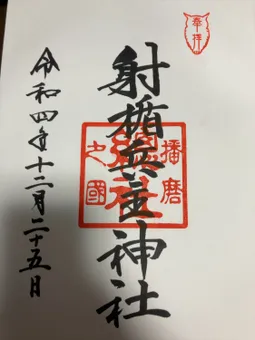 奉拝
射楯兵主神社
播磨
総社
之國
令和四年十二月二十五日